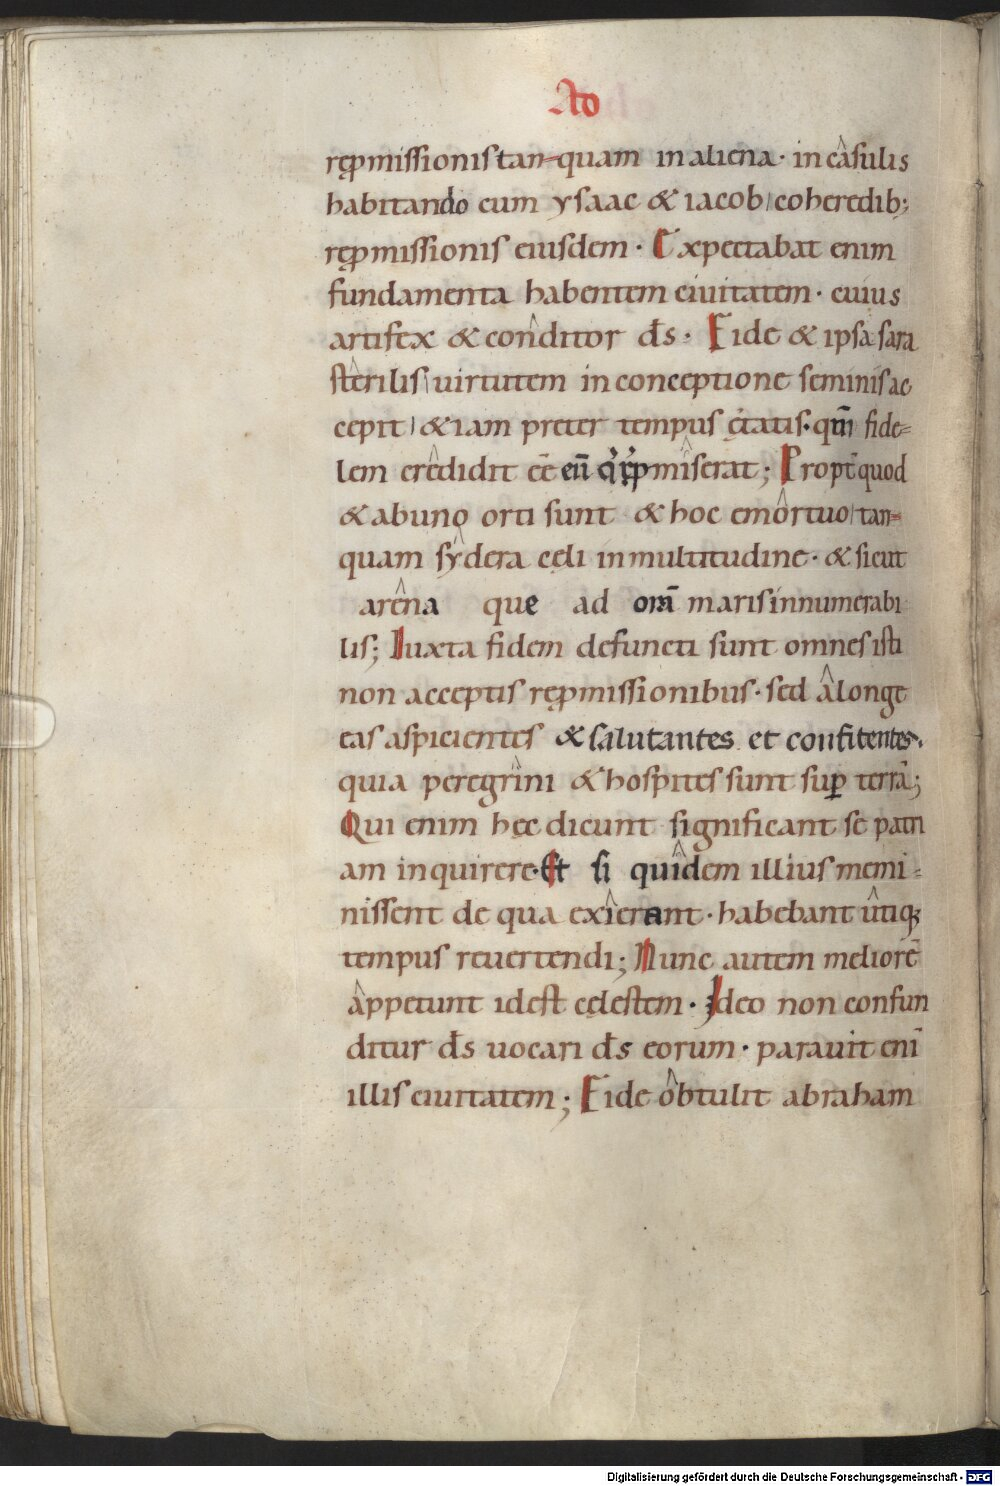 Ad
repmissionis tanquam in aliena· in casulis
habitando cum ysaac & iacob coheredib;
repmissionis eiusdem· Expectabat enim
fundamenta habentem ciuitatem· cuius
artifex & conditor ds· Fide & ipsa sara
sterilis uirtutem in conceptione seminis ac
cepit & iam preter tempus ętatis· qm fide=
lem credidit eē eū qui repmiserat; Propt quod
& ab uno orti sunt & hoc emortuo tan=
quam sydera cęli in multitudine· & sicut
arena que ad orā maris innumerabi
lis; Iuxta fidem defuncti sunt omnes isti
non acceptis repmissionibus· sed a longe
eas aspicientes & salutantes et confitentes·
quia peregrini & hospites sunt sup terrā;
Qui enim hęc dicunt significant se patri
am inquirere· Et si quidem illius memi=
nissent de qua exierant· habebant utiq;
tempus reuertendi; Nunc autem meliorē
appetunt id est cęlestem· Ideo non confun
ditur ds uocari ds eorum· parauit enī
illis ciuitatem; Fide obtulit abraham
Digitalisierung gefördert durch die Deutsche Forschungsgemeinschaft - DFG